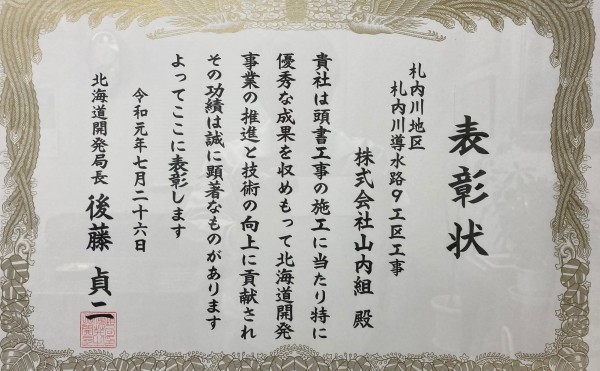 表彰状
札内川地区
札内川導水路９工区工事
株式会社山内組 殿
貴社は頭書工事の施工に当たり特に
優秀な成果を収めもって北海道開発
事業の推進と技術の向上に貢献され
その功績は誠に顕著なものがあります
よってここに表彰します
令和元年七月二十六日
北海道開発局長 後藤貞二